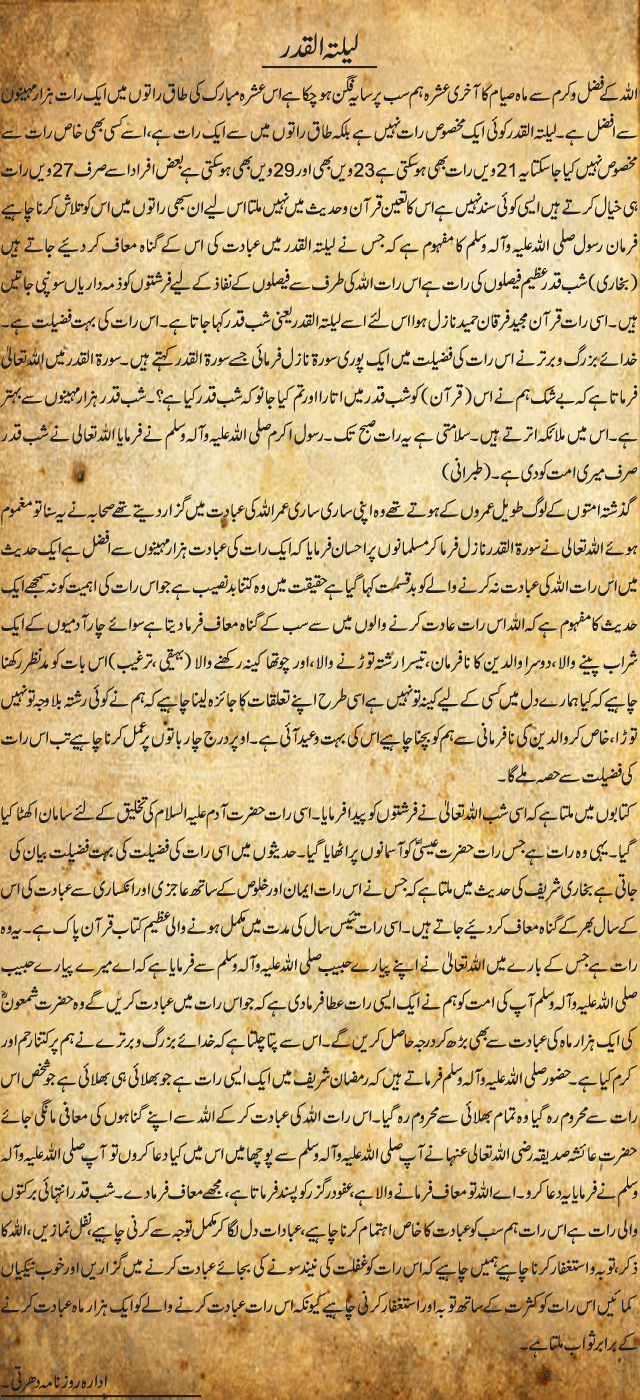 لیلتہ القدر
اللہ کے فضل و کرم سے ماہ صیام کا آخری عشرہ ہم سب پر سایہ فگن ہو چکا ہے اس عشرہ مبارک کی طاق راتوں میں ایک رات ہزار مہینوں
سے افضل ہے۔ لیلتہ القدر کوئی ایک مخصوص رات نہیں ہے بلکہ طاق راتوں میں سے ایک رات ہے، اسے کسی بھی خاص رات سے
مخصوص نہیں کیا جا سکتا یہ 21 ویں رات بھی ہو سکتی ہے 23 ویں بھی اور 29 ویں بھی ہو سکتی ہے بعض افراد اسے صرف 27 ویں رات
ہی خیال کرتے ہیں ایسی کوئی سند نہیں ہے اس کا تعین قرآن و حدیث میں نہیں ملتا اس لیے ان سبھی راتوں میں اس کو تلاش کرنا چاہیے
فرمان رسول صلی اللہ علیہ وآلہ وسلم کا مفہوم ہے کہ جس نے لیلتہ القدر میں عبادت کی اس کے گناہ معاف کر دیئے جاتے ہیں
(بخاری) شب قدر عظیم فیصلوں کی رات ہے اس رات اللہ کی طرف سے فیصلوں کے نفاذ کے لیے فرشتوں کو ذمہ داریاں سونپی جاتیں
ہیں۔ اسی رات قرآن مجید فرقان حمید نازل ہوا اس لئے اسے لیلتہ القدر یعنی شب قدر کہا جاتا ہے۔ اس رات کی بہت فضیلت ہے۔
خدائے بزرگ و برتر نے اس رات کی فضیلت میں ایک پوری سورۃ نازل فرمائی جسے سورۃ القدر کہتے ہیں۔ سورۃ القدر میں اللہ تعالیٰ
فرماتا ہے کہ بے شک ہم نے اس (قرآن) کو شب قدر میں اتارا اور تم کیا جانو کہ شب قدر کیا ہے؟۔ شب قدر ہزار مہینوں سے بہتر
ہے۔ اس میں ملائکہ اترتے ہیں۔ سلامتی ہے یہ رات صبح تک۔ رسول اکرم صلی اللہ علیہ وآلہ وسلم نے فرمایا اللہ تعالی نے شب قدر
صرف میری امت کو دی ہے۔ (طبرانی)
گذشتہ امتوں کے لوگ طویل عمروں کے ہوتے تھے وہ اپنی ساری ساری عمر اللہ کی عبادت میں گزار دیتے تھے صحابہ نے یہ سنا تو مغموم
ہوئے اللہ تعالی نے سورۃ القدر نازل فرما کر مسلمانوں پر احسان فرمایا کہ ایک رات کی عبادت ہزار مہینوں سے افضل ہے ایک حدیث
میں اس رات اللہ کی عبادت نہ کرنے والے کو بدقسمت کہا گیا ہے حقیقت میں وہ کتنا بدنصیب ہے جو اس رات کی اہمیت کو نہ سمجھے ایک
حدیث کا مفہوم ہے کہ اللہ اس رات عادت کرنے والوں میں سے سب کے گناہ معاف فرما دیتا ہے سوائے چار آدمیوں کے ایک
شراب پینے والا، دوسرا والدین کا نافرمان، تیسرا رشتہ توڑنے والا، اور چوتھا کینہ رکھنے والا (بہقی، ترغیب) اس بات کو مدنظر رکھنا
چاہیے کہ کیا ہمارے دل میں کسی کے لیے کینہ تو نہیں ہے اسی طرح اپنے تعلقات کا جائزہ لینا چاہیے کہ ہم نے کوئی رشتہ بلاوجہ تو نہیں
توڑا، خاص کر والدین کی نافرمانی سے ہم کو بچنا چاہیے اس کی بہت وعید آئی ہے۔ اوپر درج چار باتوں پر عمل کرنا چاہیے تب اس رات
کی فضیلت سے حصہ ملے گا۔
کتابوں میں ملتا ہے کہ اسی شب اللہ تعالیٰ نے فرشتوں کو پیدا فرمایا۔ اسی رات حضرت آدم علیہ السلام کی تخلیق کے لئے سامان اکھٹا کیا
گیا۔ یہی وہ رات ہے جس رات حضرت عیسیٰؑ کو آسمانوں پر اٹھایا گیا۔ حدیثوں میں اسی رات کی فضیلت کی بہت فضیلت بیان کی
جاتی ہے بخاری شریف کی حدیث میں ملتا ہے کہ جس نے اس رات ایمان اور خلوص کے ساتھ عاجزی اور انکساری سے عبادت کی اس
کے سال بھر کے گناہ معاف کر دئیے جاتے ہیں۔ اسی رات تیئس سال کی مدت میں مکمل ہونے والی عظیم کتاب قرآن پاک ہے۔ یہ وہ
رات ہے جس کے بارے میں اللہ تعالیٰ نے اپنے پیارے حبیب صلی اللہ علیہ وآلہ وسلم سے فرمایا ہے کہ اے میرے پیارے حبیب
صلی اللہ علیہ وآلہ وسلم آپ کی امت کو ہم نے ایک ایسی رات عطا فرما دی ہے کہ جو اس رات میں عبادت کریں گے وہ حضرت شمعونؑ
کی ایک ہزار ماہ کی عبادت سے بھی بڑھ کر درجہ حاصل کریں گے۔ اس سے پتا چلتا ہے کہ خدائے بزرگ و برترے نے ہم پر کتنا رحم اور
کرم کیا ہے۔ حضور صلی اللہ علیہ وآلہ وسلم فرماتے ہیں کہ رمضان شریف میں ایک ایسی رات ہے جو بھلائی ہی بھلائی ہے جو شخص اس
رات سے محروم رہ گیا وہ تمام بھلائی سے محروم رہ گیا۔ اس رات اللہ کی عبادت کر کے اللہ سے اپنے گناہوں کی معافی مانگی جائے
حضرت عائشہ صدیقہ رضی اللہ تعالی عنہا نے آپ صلی اللہ علیہ وآلہ وسلم سے پوچھا میں اس میں کیا دعا کروں تو آپ صلی اللہ علیہ وآلہ
وسلم نے فرمایا یہ دعا کرو۔ اے اللہ تو معاف فرمانے والا ہے، عفو درگزر کو پسند فرماتا ہے، مجھے معاف فرما دے۔ شب قدر انتہائی برکتوں
والی رات ہے اس رات ہم سب کو عبادت کا خاص اہتمام کرنا چاہیے، عبادات دل لگا کر مکمل توجہ سے کرنی چاہیے، نفل نمازیں، اللہ کا
ذکر، توبہ و استغفار کرنا چاہیے ہمیں چاہیے کہ اس رات کو غفلت کی نیند سونے کی بجائے عبادت کرنے میں گزاریں اور خوب نیکیاں
کمائیں اس رات کو کثرت کے ساتھ توبہ اور استغفار کرنی چاہیے کیونکہ اس رات عبادت کرنے والے کو ایک ہزار ماہ عبادت کرنے
کے برابر ثواب ملتا ہے۔
ادارہ روزنامہ دھرتی۔